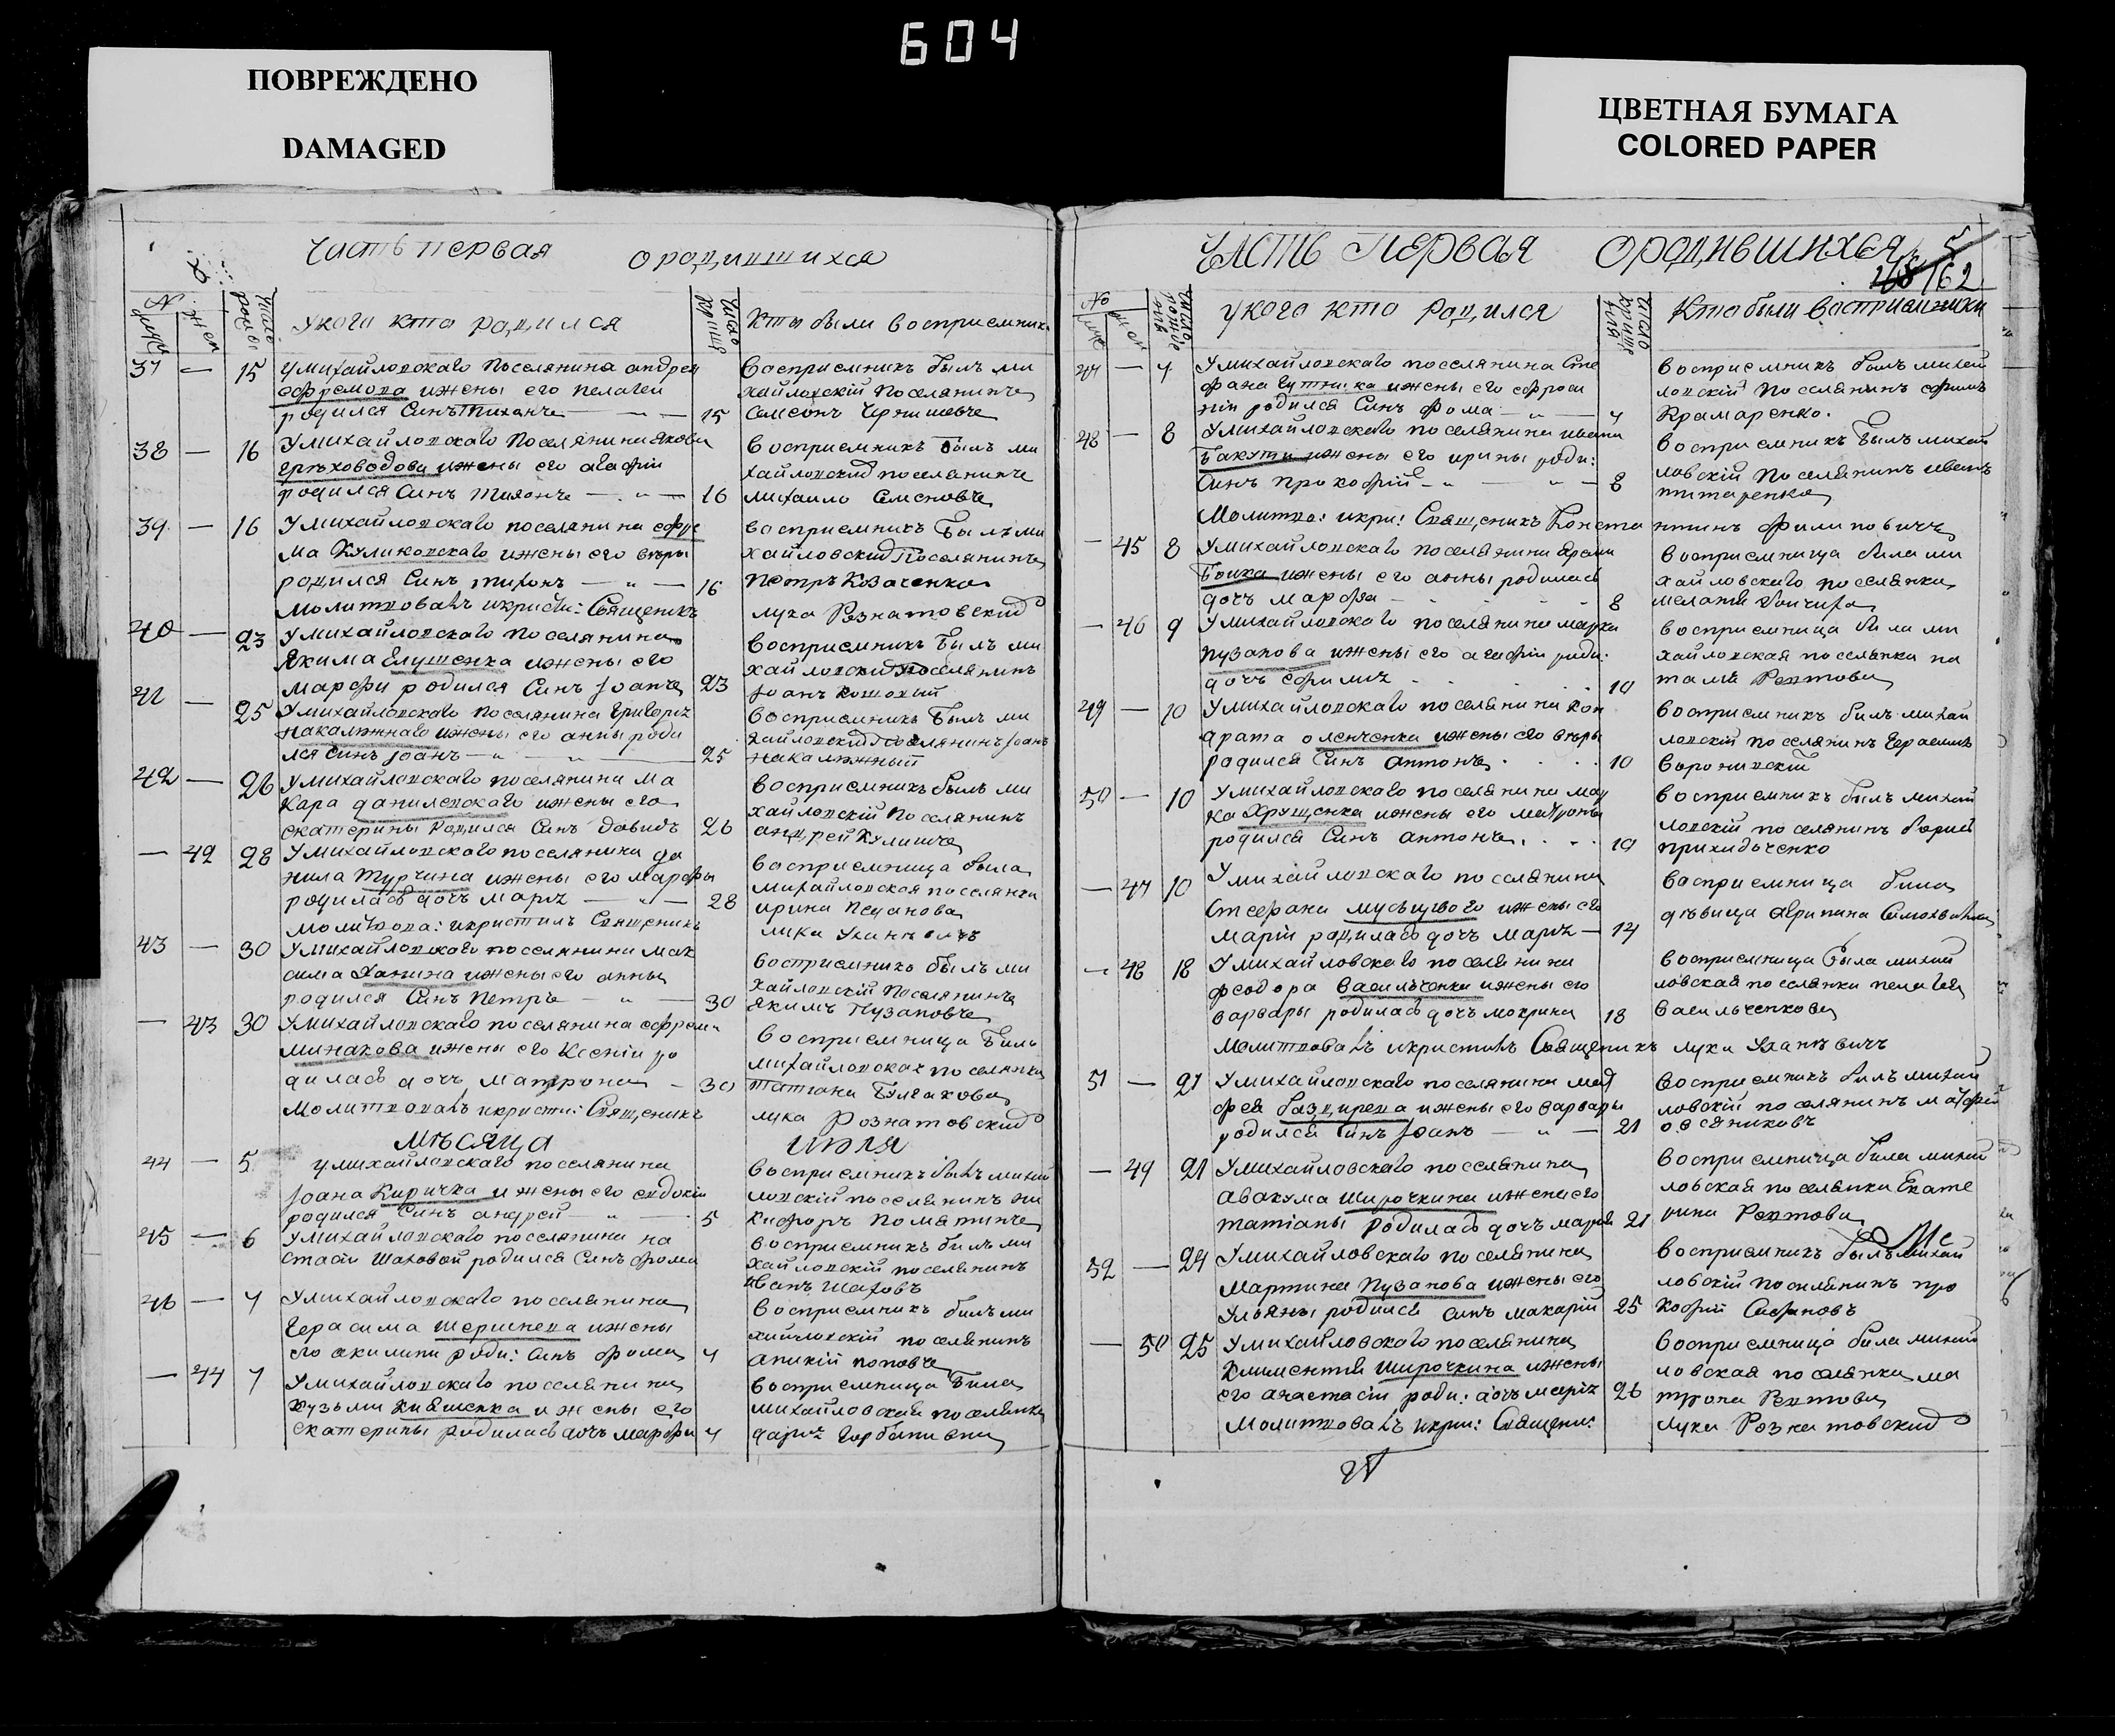 604
ПОВРЕЖДЕНО
DAMAGED
ЦВЕТНАЯ БУМАГА
COLORED PAPER
Часть первая о родившихся
№ муж жен
Число рожде
У кого кто родился
Число креще
Кто были восприемник
37 — 15 У михайловского поселянина андрея
ефремова и жены его пелагеи
родился Синъ Тихонъ — " — 15
Восприемникъ былъ ми
хайловскій Поселянинъ
Самсонъ Чернишевъ
38 — 16 У михайловского поселянина якова
греховодова и жены его агафіи
родился Синъ тихонъ — " — 16
Восприемникъ былъ ми
хайловский поселянинъ
михаило Семеновъ
39 — 16 У михайловского поселянина ефре
ма Куликовского и жены его веры
родился Синъ тихонъ — " — 16
Восприемникъ Былъ ми
хайловский Поселянинъ
Петръ Козаченко
молитвовалъ и крести: Священикъ лука Рознатовский
40 — 23 У михайловского поселянина
Якима Глушенка и жены его
марфи родился Синъ Іоанъ 23
Восприемникъ Былъ ми
хайловский Поселянинъ
Іоанъ Кошовый
41 — 25 У михайловского поселянина Григорія
накалежнаго и жены его анны роди
лся Синъ Іоанъ — " — 25
Восприемникъ Былъ ми
хайловский Поселянинъ Іоанъ
накалежный
42 — 26 У михайловского поселянина Ма
кара данилевского и жены его
екатерины родился Синъ давидъ 26
Восприемникъ былъ ми
хайловскій Поселянинъ
андрей Кулишъ
— 42 28 У михайловского поселянина да
нила Турчина и жены его марфы
родилась дочъ марія — " — 28
Восприемница была
михайловская поселянка
ирина Педанова
молитвова: и крестилъ Священикъ лука
43 — 30 У михайловского поселянина мак
сима Ханина и жены его анны
родился Синъ Петръ — " — 30
Восприемникъ былъ ми
хайловскій Поселянинъ
якимъ Пузановъ
— 43 30 У михайловского поселянина ефрема
минакова и жены его Ксеніи ро
дилась дочъ матрона — 30
Восприемница Была
михайловская поселянка
татіана Булгакова
молитвовалъ и крести: Священикъ лука Рознатовский
Месяца июля
44 — 5 У михайловского поселянина
Іоана Киричка и жены его евдокіи
родился Синъ андрей — " — 5
Восприемникъ былъ михай
ловскій поселянинъ ни
кифоръ Помазинъ
45 — 6 У михайловского поселянина на
стасіи Шаховой родился Синъ фома
Восприемникъ былъ ми
хайловскій поселянинъ
Иванъ Шаховъ
46 — 7 У михайловского поселянина
Герасима шершнева и жены
его акилини роди: Синъ фома 7
Восприемникъ былъ ми
хайловскій поселянинъ
аникій поповъ
— 44 7 У михайловского поселянина
Кузьми Кившенка и жены его
екатерины родилась дочъ марфа 7
Восприемница Была
михайловская поселянка
дарія Горбанивна
Часть Первая о родившихся
162
№ муж жен
Число рожде
У кого кто Родился
Число креще
Кто были Восприемники
47 — 7 У михайловского поселянина Сте
фана Гутника и жены его ефроси
ніи родился Синъ фома — " — 7
Восприемникъ былъ михай
ловскій поселянинъ ефимъ
Крамаренко.
48 — 8 У михайловского поселянина ивана
Бакути и жены его ирины роди:
Синъ прокофій — " — 8
Восприемникъ былъ михай
ловскій поселянинъ иванъ
титаренко
Молитво: и кри: Священикъ Константинъ филиповичъ
— 45 8 У михайловского поселянина Ереми
Бойка и жены его анны родилась
дочъ марфа — 8
Восприемница била ми
хайловского поселянка
мелания
— 46 9 У михайловского поселянина марка
пузанова и жены его агафіи роди:
дочъ ефимія 10
Восприемница била ми
хайловская поселянка на
талія Рехтова
49 — 10 У михайловского поселянина Кон
драта оленченка и жены его веры
родился Синъ антонъ 10
Восприемникъ билъ михай
ловскій поселянинъ Герасимъ
Воронинский
50 — 10 У михайловского поселянина мар
ка Хрущенка и жены его матроны
родился Синъ антонъ 10
Восприемникъ былъ михай
ловскій поселянинъ борисъ
приходьченко
— 47 10 У михайловского поселянина
Стефана и жены его
маріи родилась дочъ марія — 14
Восприемница била
девица агрипина
— 48 18 У михайловского поселянина
феодора Васильченка и жены его
варвары родилась дочъ мокрина 18
Восприемница была михай
ловская поселянка пелагея
Васильченкова
Молитвовалъ и крестилъ Священикъ лука
51 — 21 У михайловского поселянина мат
фея и жены его варвары
родился Синъ Іоанъ — " — 21
Восприемникъ билъ михай
ловскій поселянинъ матфей
овсяниковъ
— 49 21 У михайловского поселянина
авакума широчкина и жены его
татіаны родилась дочъ марія 21
Восприемница била михай
ловская поселянка Екате
рина Рехтова
52 — 24 У михайловского поселянина
Мартина Пузанова и жены его
Ульяны родился синъ макарий 25
Восприемникъ былъ михай
ловскій поселянинъ про
кофій Сафоновъ
— 50 25 У михайловского поселянина
Климентія широчкина и жены
его анастасіи роди: дочъ марія 26
Восприемница била михай
ловская поселянка ма
трона Рехтова
Молитвовалъ и кри: Священи: лука Рознатовский